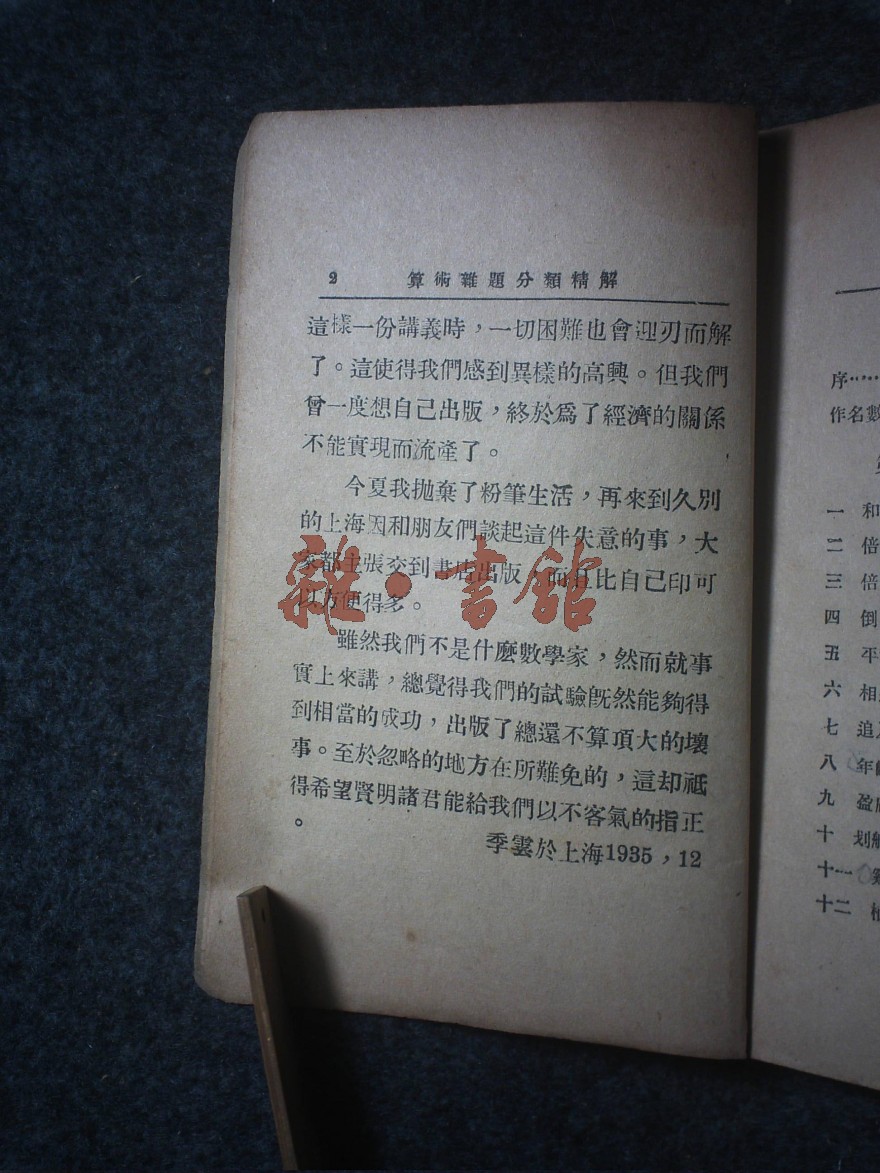 2 算術雜題分類精解
這樣一份講義時，一切困難也會迎刃而解
了。這使得我們感到異樣的高興。但我們
曾一度想自己出版，終於爲了經濟的關係
不能實現而流產了。
今夏我拋棄了粉筆生活，再來到久別
的上海因和朋友們談起這件失意的事，大
家都主張交到書店出版，而且比自己印可
以方便得多。
雖然我們不是什麼數學家，然而就事
實上來講，總覺得我們的試驗旣然能夠得
到相當的成功，出版了總還不算頂大的壞
事。至於忽略的地方在所難免的，這却祗
得希望賢明諸君能給我們以不客氣的指正
。
季雲於上海1935，12
雜·書館
序……
作名數
一 和
二 倍
三 倍
四 倒
五 平
六 相
七 追
八 年齡
九 盈
十 划
十一
十二